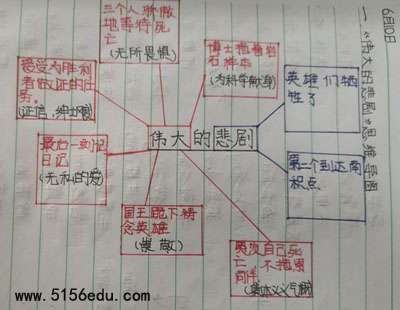 6月10日
一、《伟大的悲剧》思维导图
三个人骄傲
地等待死
亡
(无所畏惧)
博士拖着岩
石样本
(为科学献身)
英雄们牺
牲了
接受为胜利
者作证的任
务。
(诚信,绅士风度)
伟大的悲剧
最后一刻记
日记
(无私的爱)
第二个到达南
极点
国王跪下悼
念英雄
(崇敬)
奥茨自己死
亡,不拖累
同伴
(集体主义气概)
www.5156edu.com